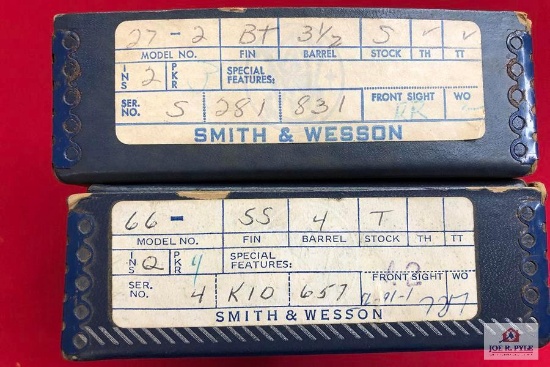 27-2 Bt 3½ S ✓ ✓
MODEL NO. FIN BARREL STOCK TH TT
INS 2 PKR SPECIAL FEATURES:
SER. NO. S 281 831 FRONT SIGHT WO
SMITH & WESSON
66- SS 4 T
MODEL NO. FIN BARREL STOCK TH TT
INS Q PKR 4 SPECIAL FEATURES:
SER. NO. 4 K10 657 FRONT SIGHT WO
SMITH & WESSON
JOE R. PYLE